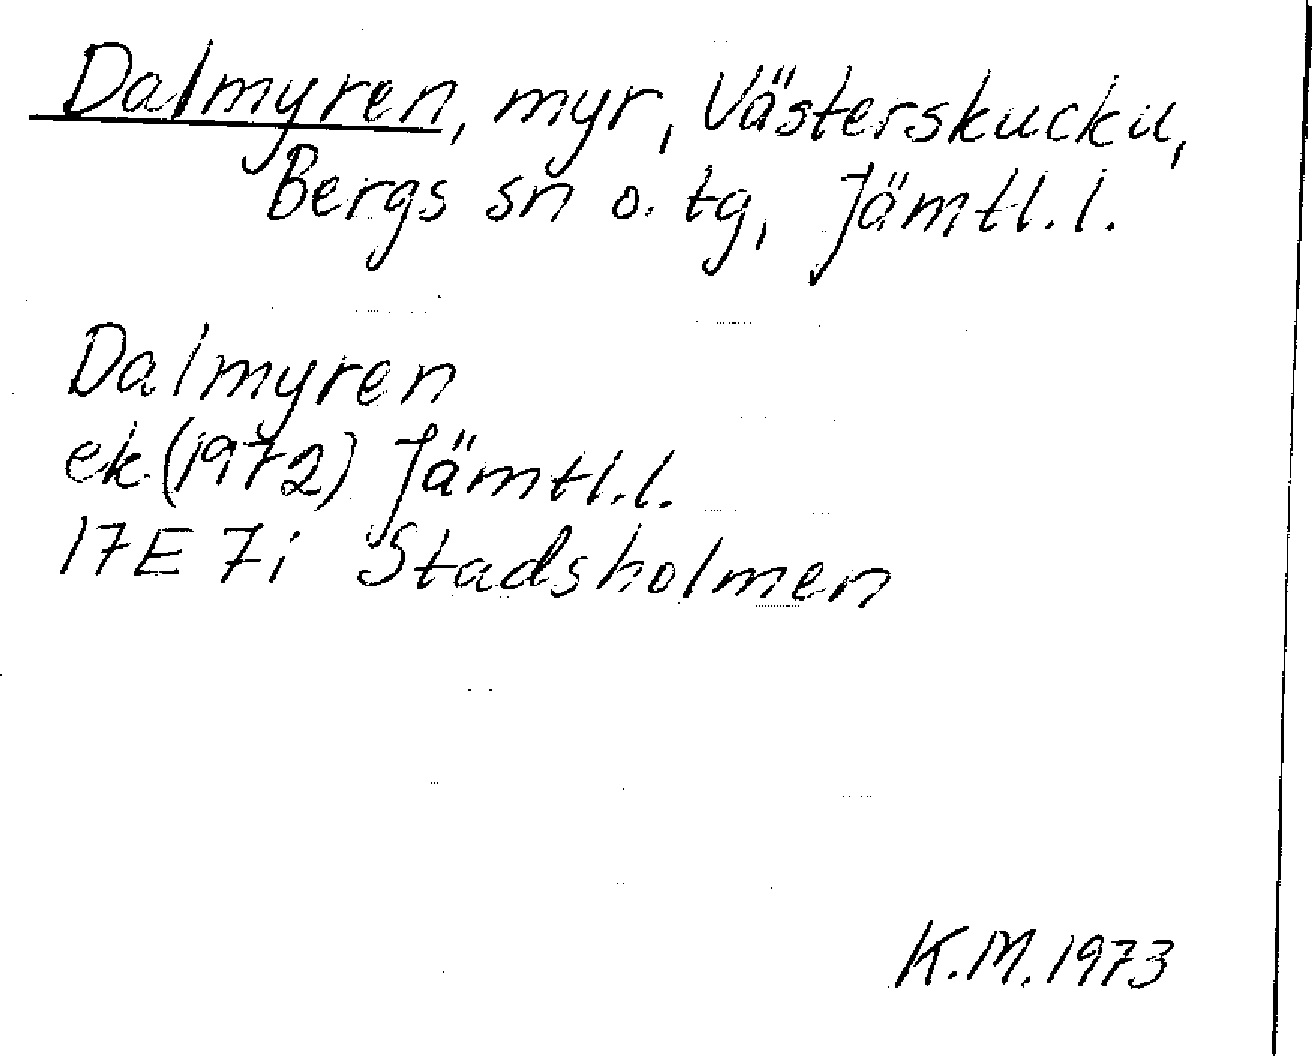 Dalmyren, myr, Västerskucku,
Bergs sn o. tg, Jämtl. l.
Dalmyren
ek. (1972) Jämtl. l.
17E 7i Stadsholmen
K.M. 1973